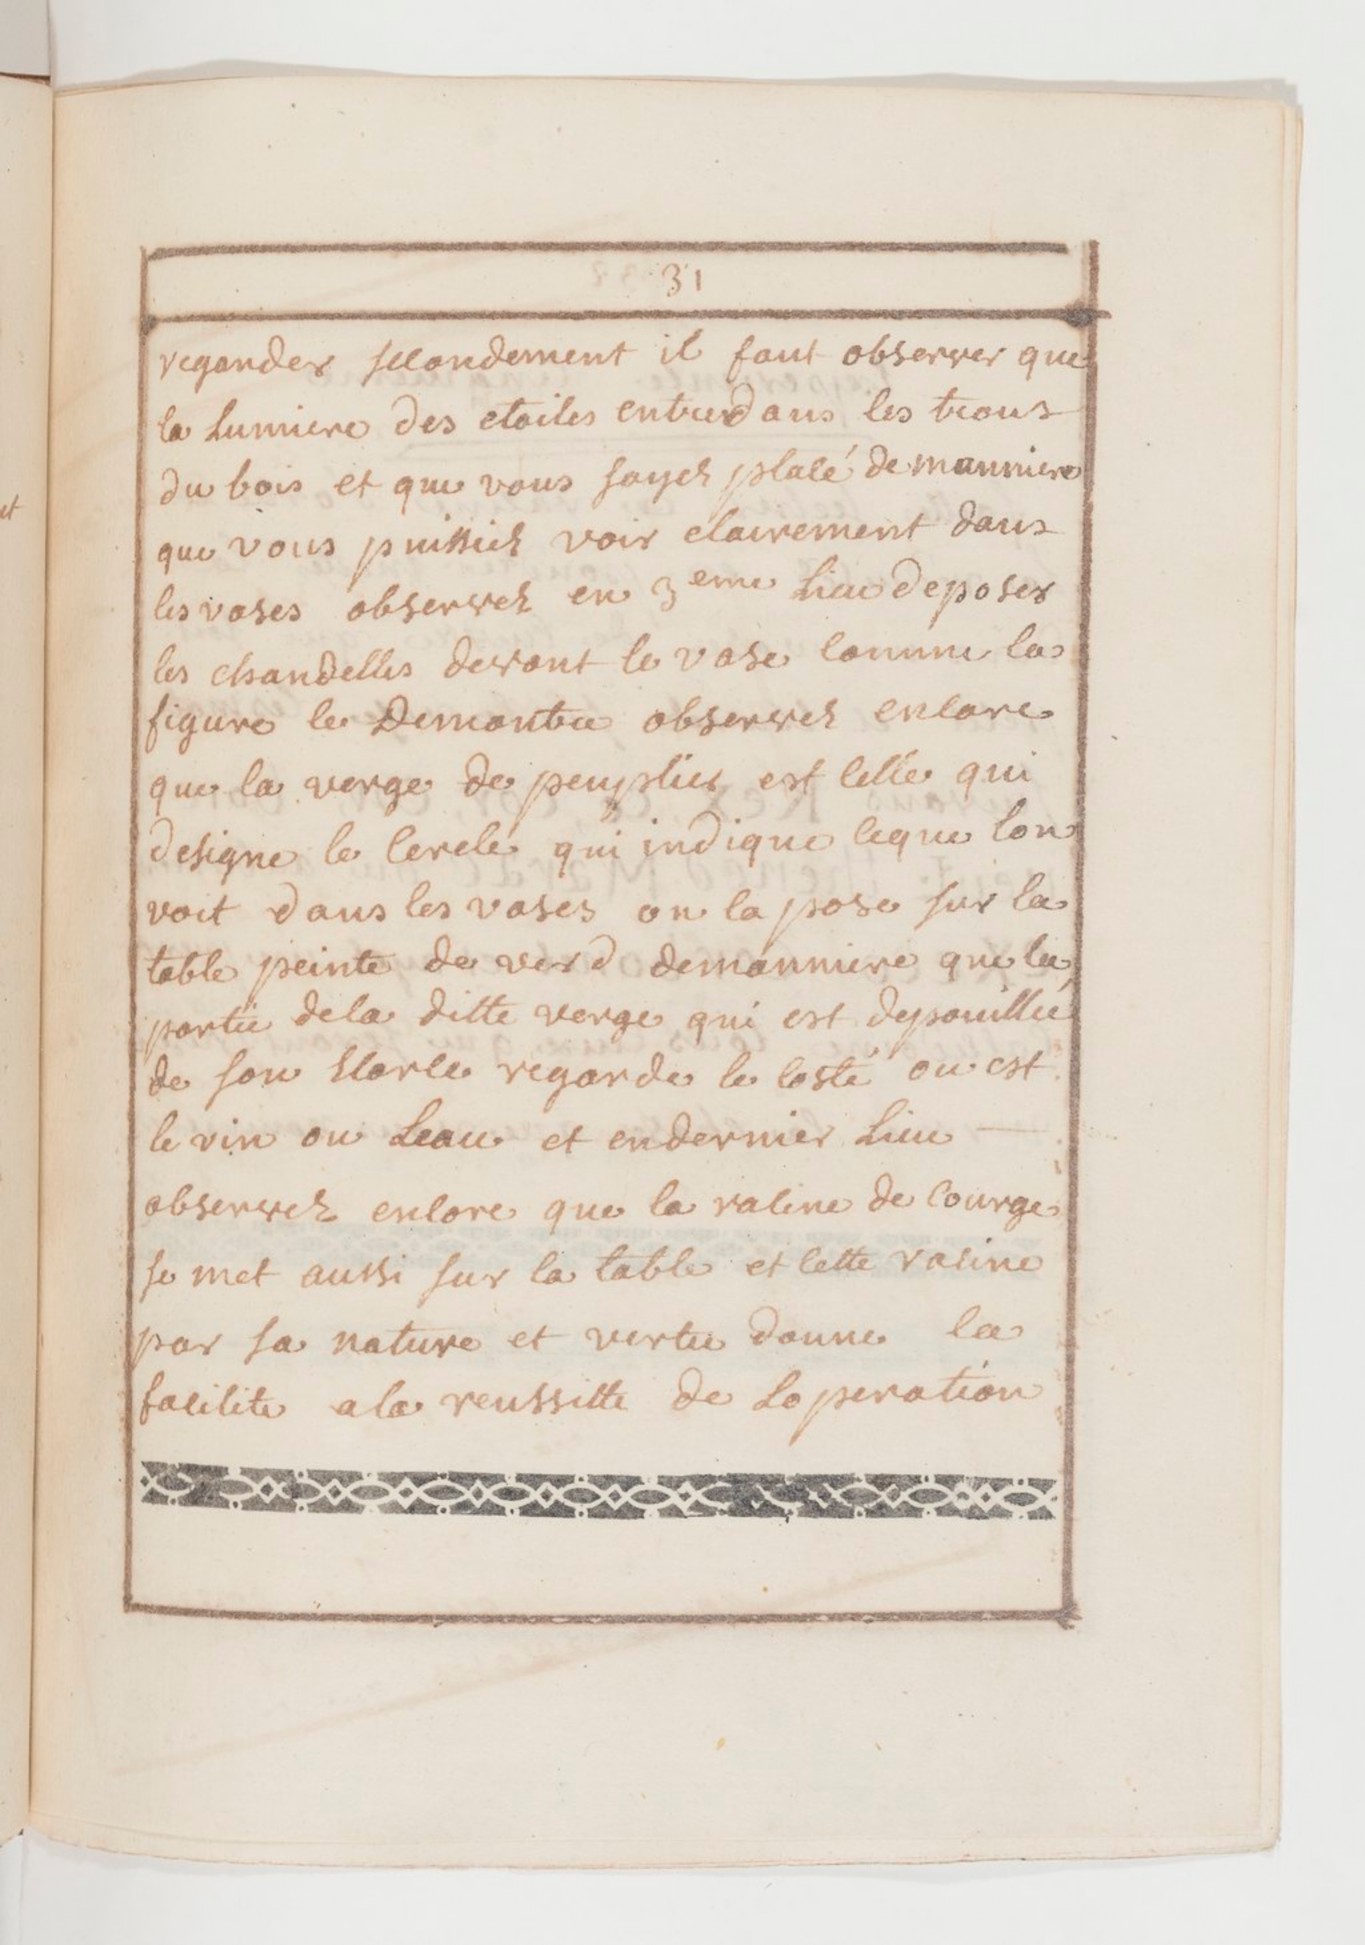 31
regarder secondement il faut observer que
la Lumiere des etoiles entre dans les trous
du bois et que vous soyez placé de manniere
que vous puissiez voir clairement dans
les vases observez en 3eme Lieu de poser
les chandelles devant le vase comme la
figure le Demontre observez encore
que la verge de peuplier est celle qui
designe le cercle qui indique ceque lon
voit dans les vases on la pose sur la
table peinte de verd demanniere que la
partie dela ditte verge qui est depouillée
de son Ecorce regarde le costé ou est
le vin ou Leau et endernier Lieu
observez encore que la racine de courge
se met aussi sur la table et cette racine
par sa nature et vertu donne la
facilite ala reussitte de Loperation